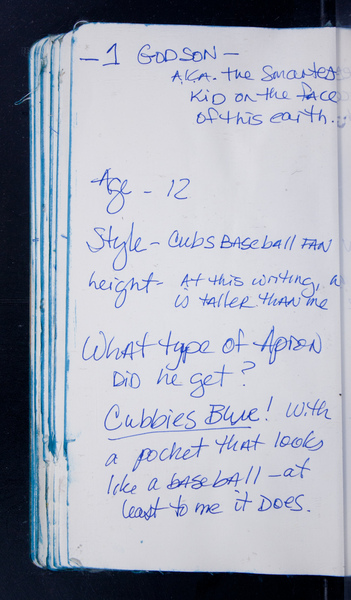 - 1 GODSON -
A.K.A. the Smartest
KID ON the face
of this earth.
Age - 12
Style - CUBS BASEBALL FAN
height - At this writing,
is TALLER THAN me
What type of Apron
DID he get?
Cubbies Blue! With
a pocket that looks
like a BASEBALL - at
least to me it DOES.